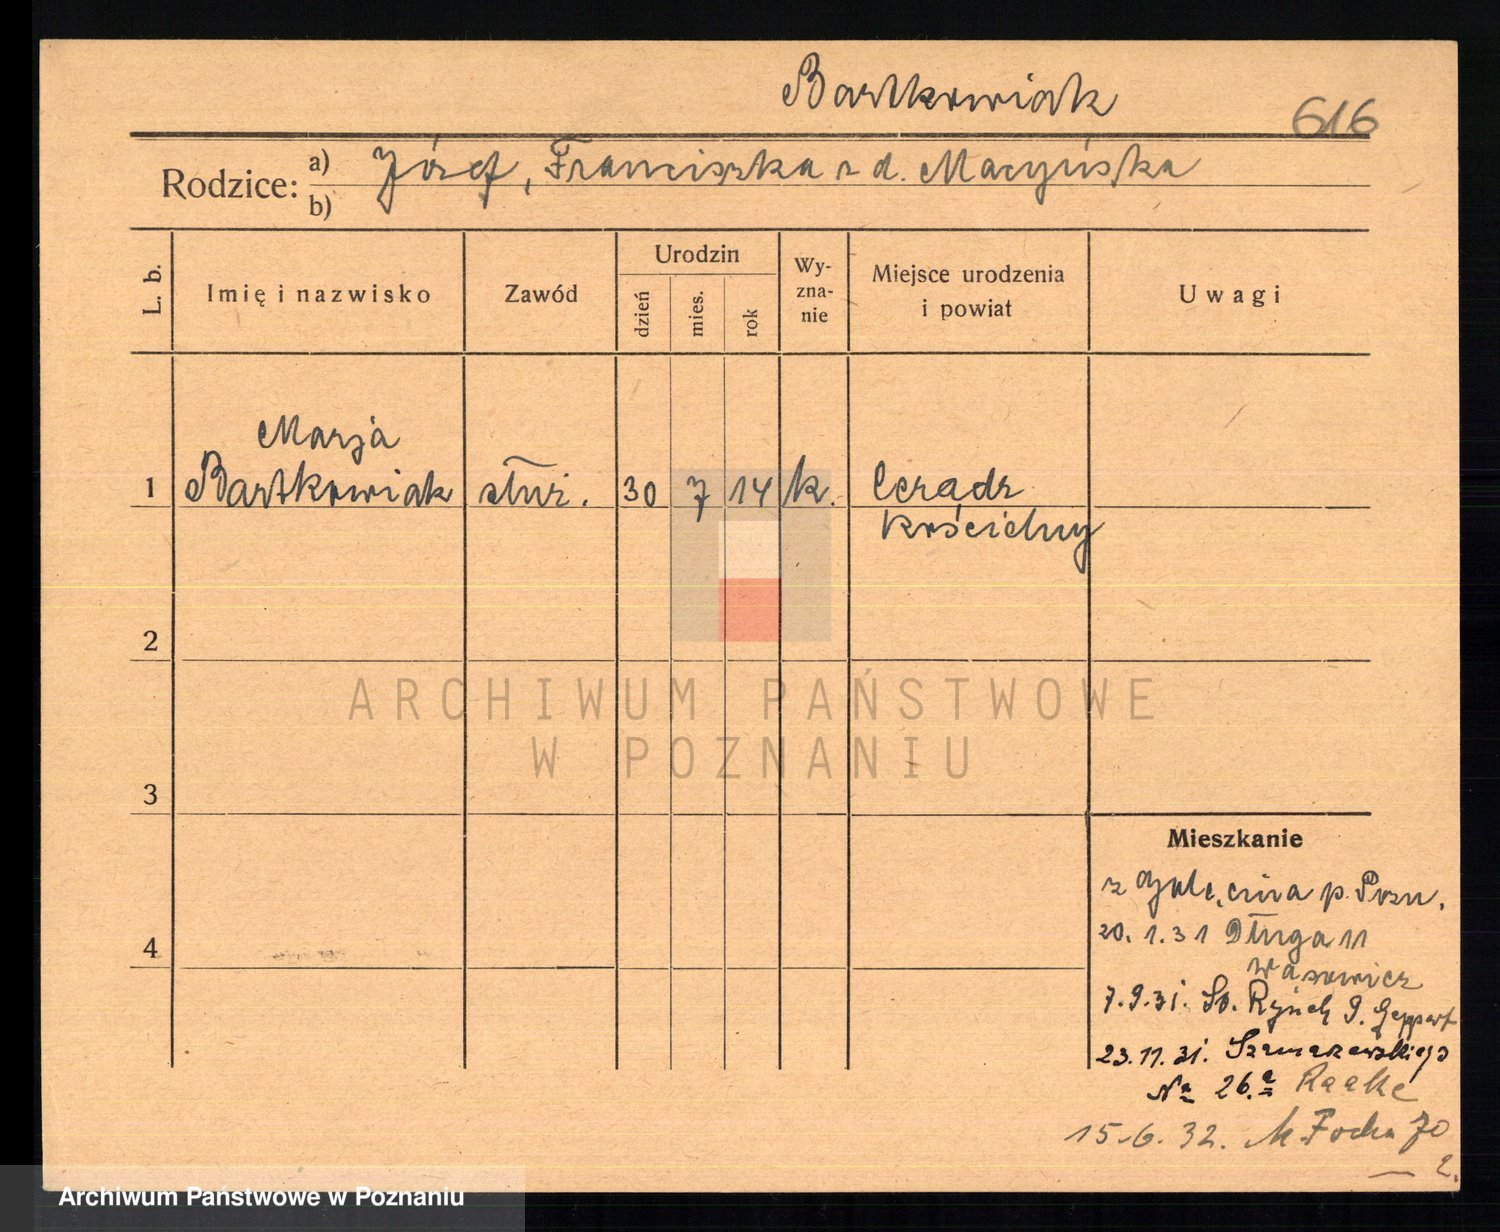 Bartkowiak
616
Rodzice: a) Józef, Franciszka z d. Macyńska
b)
L. b.
Imię i nazwisko
Zawód
Urodzin
dzień
mies.
rok
Wy-
zna-
nie
Miejsce urodzenia
i powiat
Uwagi
Marja
1 Bartkowiak służ. 30 7 14 k. Cerądz
kościelny
2
3
4
ARCHIWUM PAŃSTWOWE
W POZNANIU
Mieszkanie
z Golęcina p. Pozn.
20. 1. 31 Długa 11
Wasowicz
7. 9. 31. St. Rynek 9. Geppert
23. 11. 31. Szamarzewskiego
No 26.a Raake
15. 6. 32. M. Focha 70
2.
Archiwum Państwowe w Poznaniu